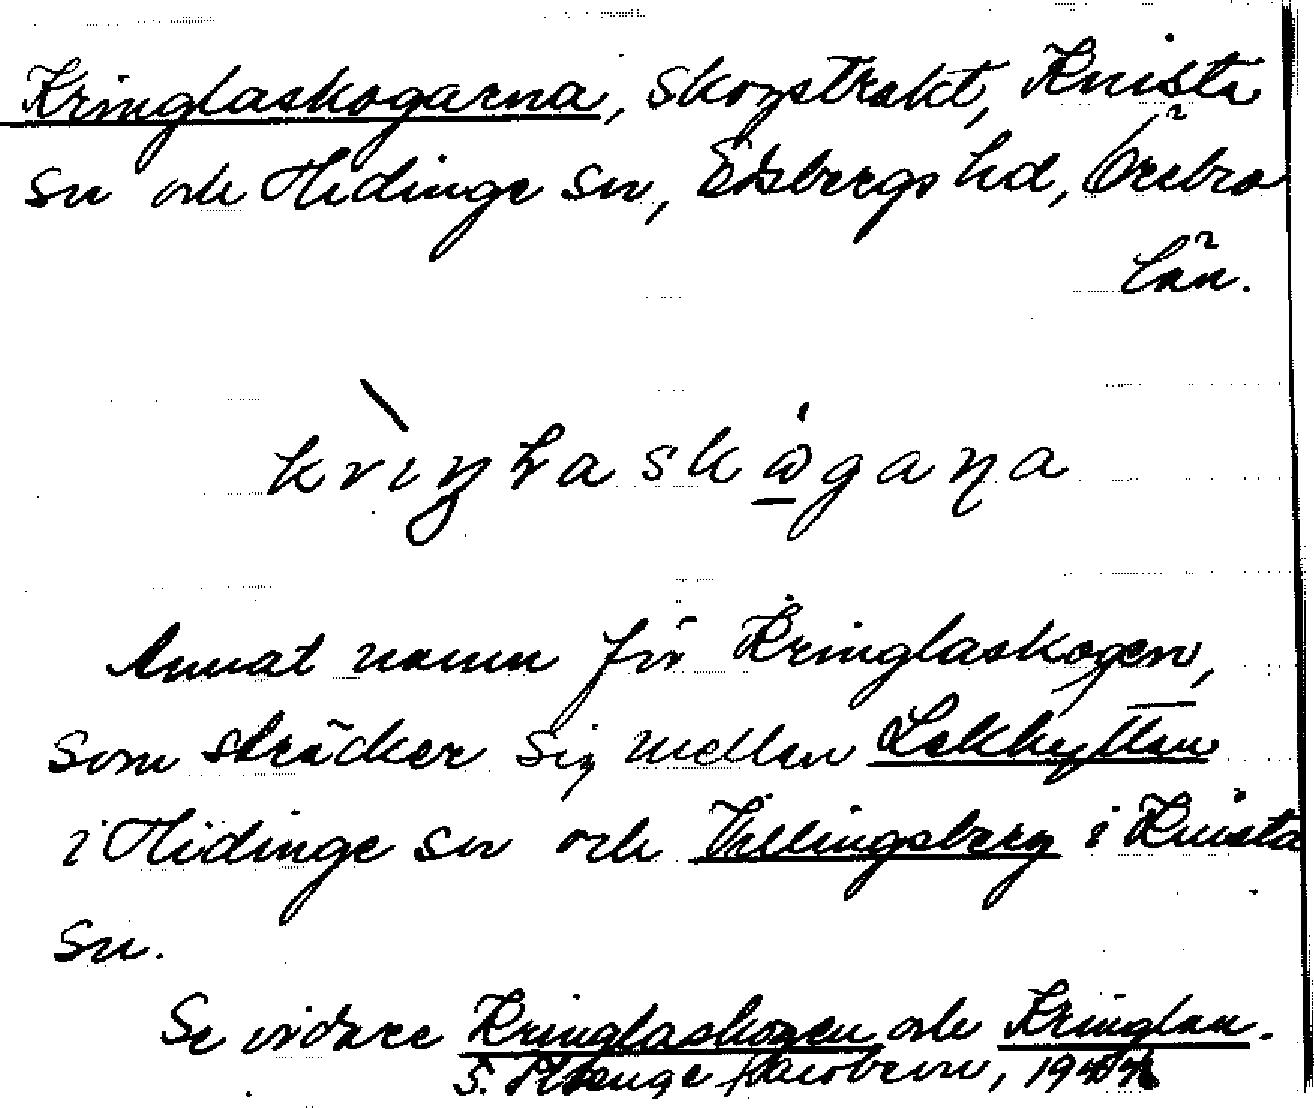 Kringlaskogarna, skogstrakt, Knista
sn och Hidinge sn, Edsbergs hd, Örebro
län.
Annat namn för Kringlaskogen,
som sträcker sig mellan Lekhyttan
i Hidinge sn och Villingsberg i Knista
sn.
Se vidare Kringlaskogen och Kringlan.
S. Jacobson,